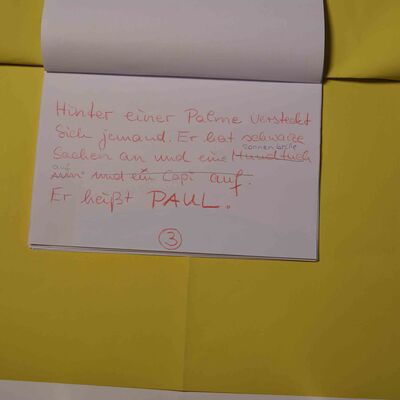 Hinter einer Palme versteckt
sich jemand. Er hat schwarze
Sonnenbrille
Sachen an und eine Handtuch
auf
und ein Capi auf.
Er heißt PAUL.
3